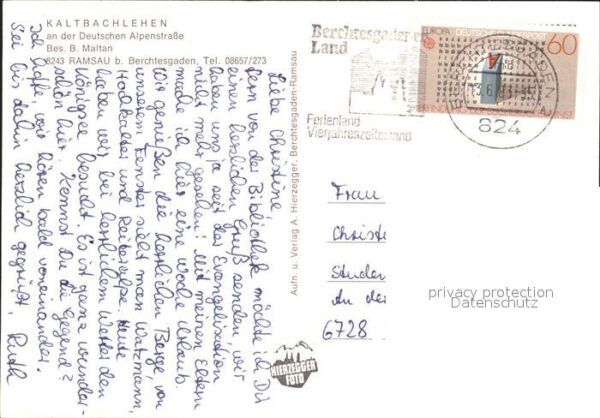 KALTBACHLEHEN
an der Deutschen Alpenstraße
Bes. B. Maltan
8243 RAMSAU b. Berchtesgaden, Tel. 08657/273
Liebe Christine!
Fern von der Bibliothek möchte ich Dir
einen herzlichen Gruß senden, wir
haben uns ja seit der Evangelization
nicht mehr gesehen! Mit meinen Eltern
mache ich hier eine Woche Urlaub.
Wir genießen die herrlichen Berge, von
unserem Fenster sieht man Watzmann,
Hochkalter und Reiteralpe. Heute
haben wir bei herrlichem Wetter den
Königsee besucht. Es ist ganz wunder-
schön hier. Kennst Du die Gegend?
Ich hoffe, wir hören bald voneinander.
Sei bis dahin herzlich gegrüßt, Ruth
Aufn. u. Verlag A. Hierzegger, Berchtesgaden-Ramsau
HIERZEGGER
FOTO
Berchtesgadener
Land
Ferienland
Vierjahreszeitenland
EUROPA
60
BERCHTESGADEN
824
Frau
Christe
Studen
An der
6728
privacy protection
Datenschutz